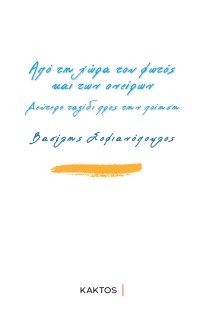 Από τη χώρα του φωτός
και των ονείρων
Δεύτερο ταξίδι προς την ποίηση
Βασίλης Σοφιανόπουλος
ΚΑΚΤΟΣ